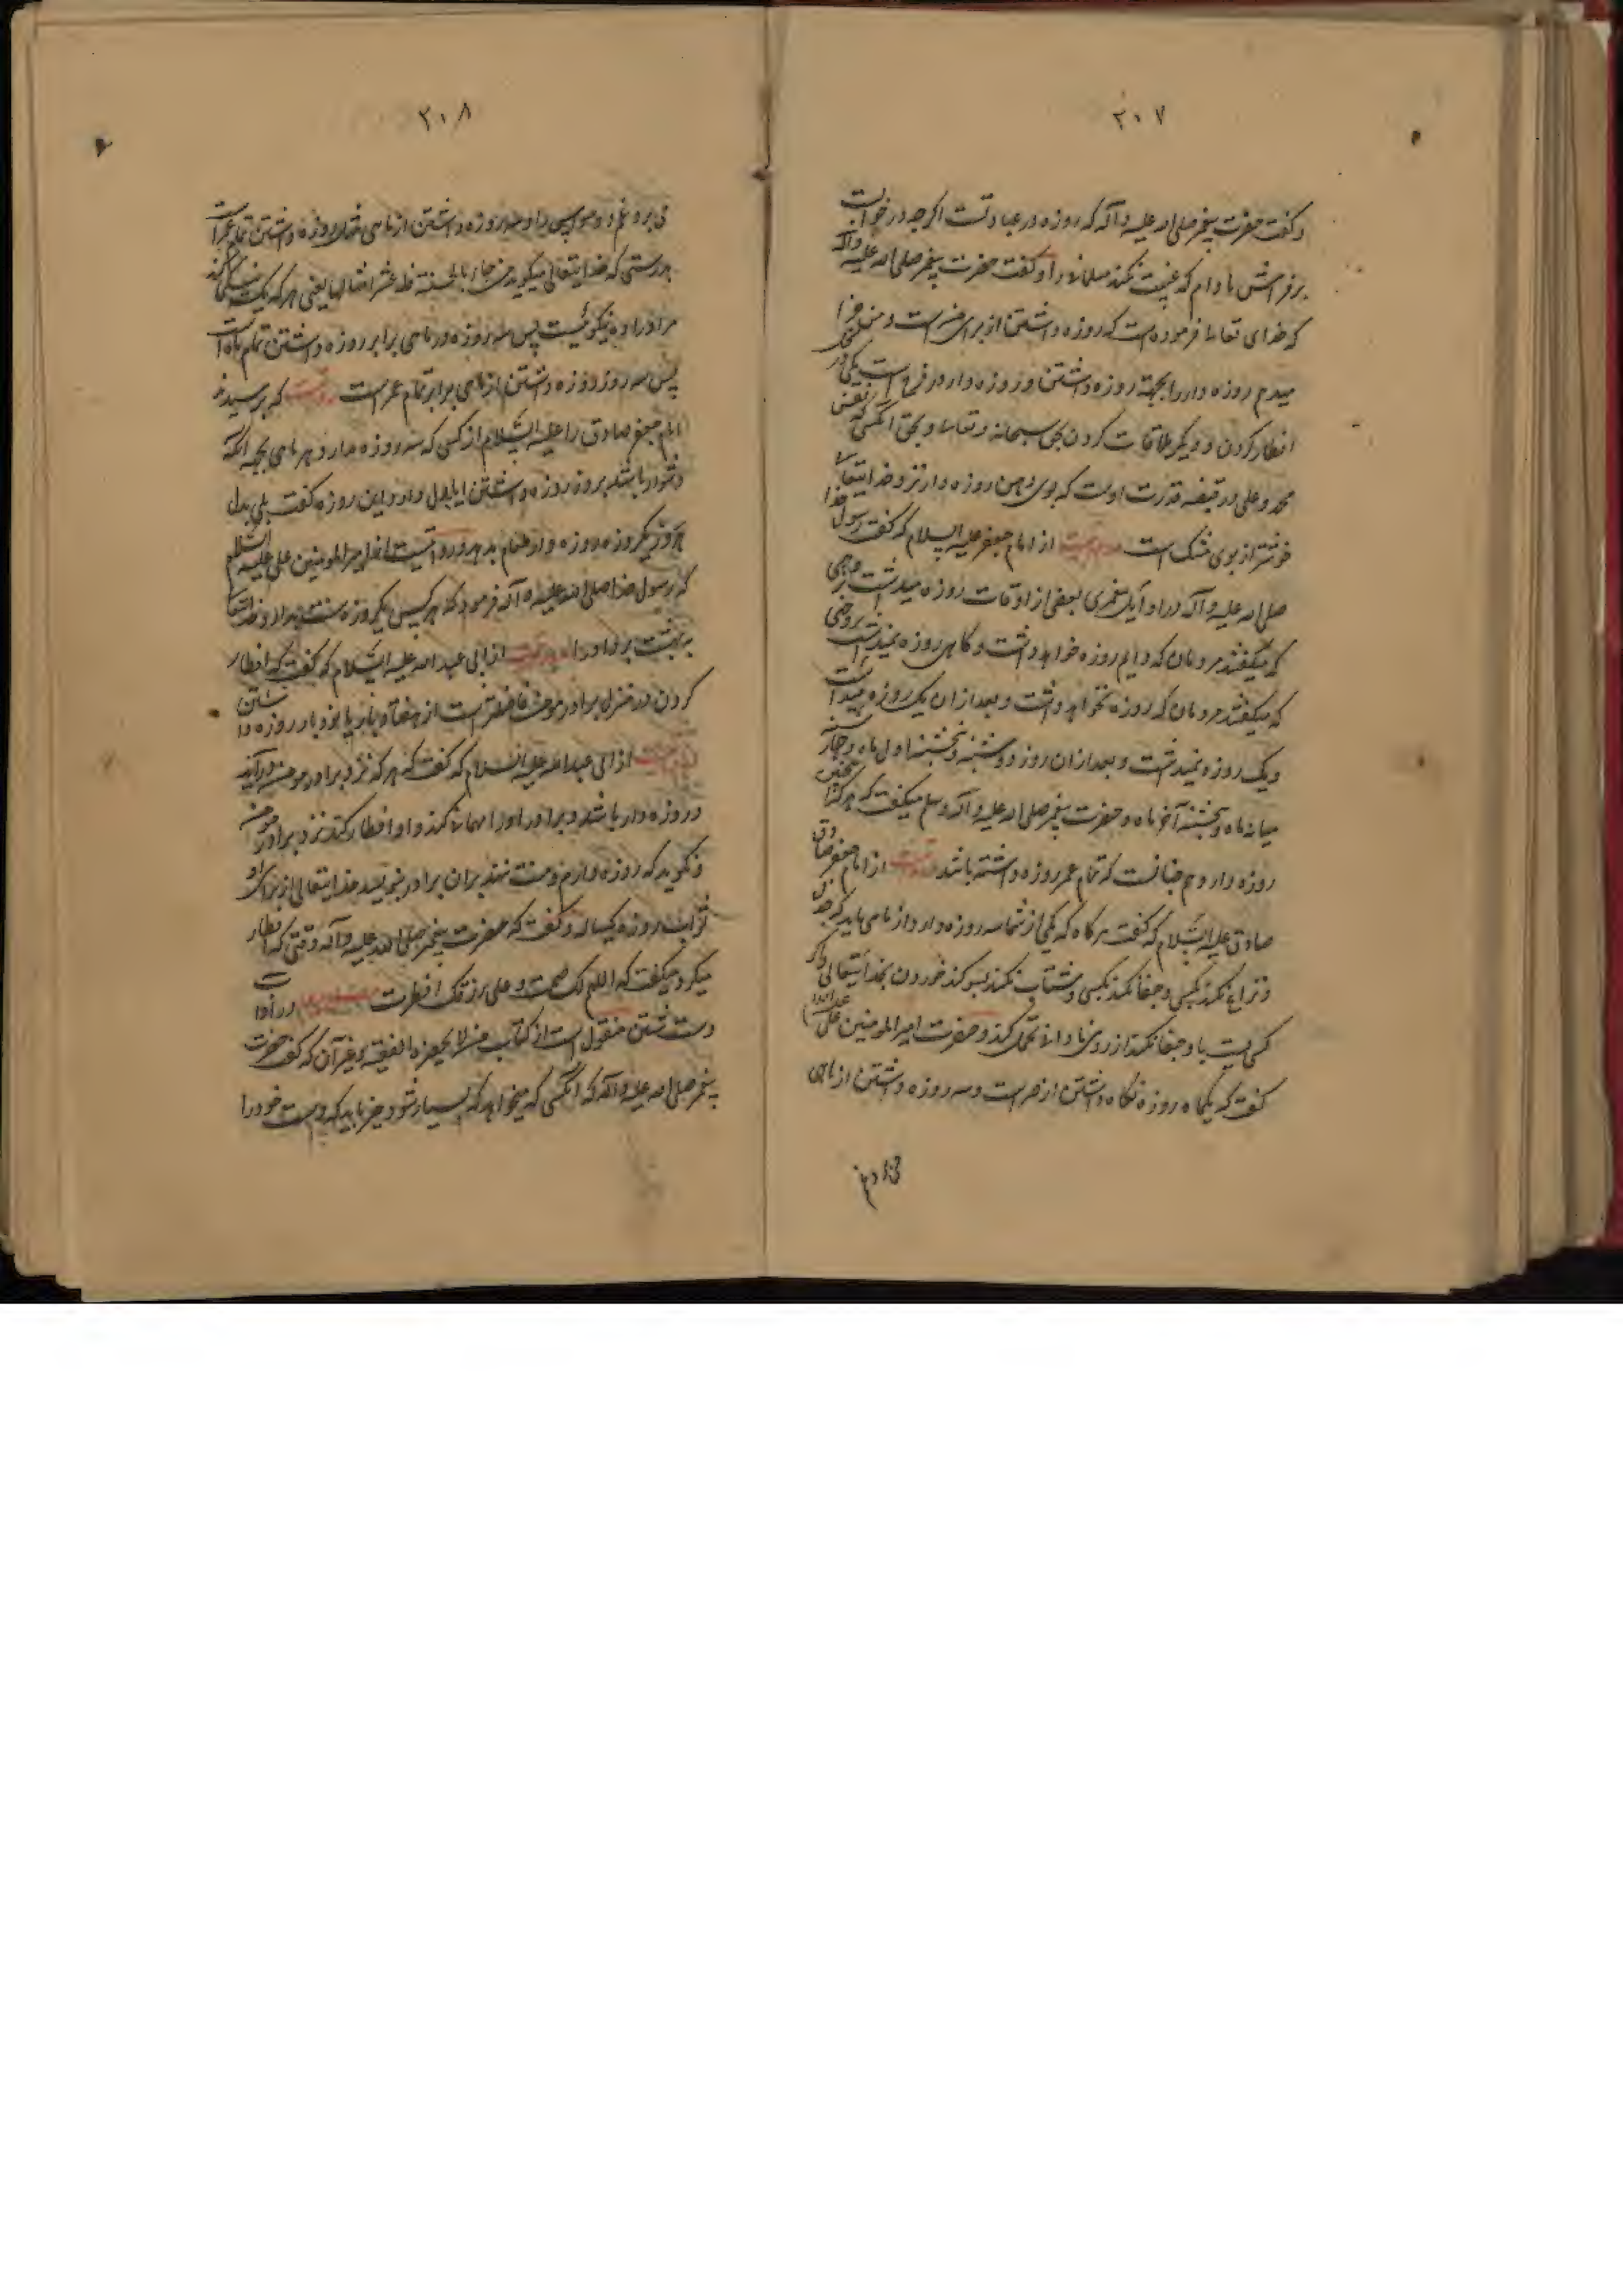 ۲۰۷
و گفت حضرت پیغمبر صلی الله علیه و آله که روزه در عبادتست اگرچه در خوابست
بر فراشش مادام که غیبت نکند مسلمانی را و گفت حضرت پیغمبر صلی الله علیه و آله
که خدای تعالی فرموده است که روزه داشتن از برای منست و من جزا
میدهم روزه دار را بجهة روزه داشتن و روزه دار دو فرح است یکی در
افطار کردن و دیگر ملاقات کردن حق سبحانه و تعالی و بحق آنکسی که نفس
محمد و علی در قبضه قدرت اوست که بوی دهن روزه دار نزد خدایتعالی
خوشتر از بوی مشک است از امام جعفر علیه السلام که گفت رسول خدا
صلی الله علیه و آله در اوایل پیغمبری بعضی از اوقات روزه میداشت
که میگفتند مردمان که دایم روزه خواهد داشت و گاهی روزه نمیداشت
که میگفتند مردمان که روزه نخواهد داشت و بعد از ان یک روزه میداشت
و یک روزه نمیداشت و بعد از ان روز دوشنبه و پنجشنبه اول ماه و چهارشنبه
میانه ماه و پنجشنبه آخر ماه و حضرت پیغمبر صلی الله علیه و آله وسلم میگفت که هرکه
روزه دارد هم چنانست که تمام عمر روزه داشته باشد از امام جعفر صادق
صادق علیه السلام که گفت هرگاه که یکی از شما سه روزه دارد از ماهی باید که
و نزاع نکند بکسی و جفا نکند بکسی و شتاب نکند بسوگند خوردن بخدایتعالی و اگر
کسی با و جفا کند از روی نادانی تحمل کند و حضرت امیر المومنین علی علیه السلام
گفت که یکماه روزه نگاه داشتن از صبر است و سه روزه داشتن از ماهی
۲۰۸
می برد غم و وسواس را و سه روزه داشتن از ماهی روزه داشتن تمام عمر است
بدرستی که خدایتعالی میگوید من جاء بالحسنة فله عشر امثالها یعنی هر که یک نیکی کند
مر او را ده نیکوئیست پس سه روزه در ماهی برابر روزه داشتن تمام ماه است
پس سه روز روزه داشتن از ماهی برابر تمام عمر است که پرسیدند
امام جعفر صادق را علیه السلام از کسی که سه روزه دارد هر ماهی بجهة آنکه
دشوار باشد برو روزه داشتن ایا بدل دارد این روزه گفت بلی بدل
هر یکروزه طعام بدهد امیر المومنین علی علیه السلام
که رسول خدا صلی الله علیه و آله فرمود که هر کس یکروزه سنت بدارد خدایتعالی
به بهشت برد او را از ابی عبد الله علیه السلام که گفت که افطار
کردن در منزل برادر مومن فاضلتر است از هفتاد بار یا نود بار روزه داشتن
از ابی عبد الله علیه السلام که گفت که هر که نزد برادر مومن درآید
و روزه دار باشد و برادر او را مهمانی کند و او افطار کند نزد برادر مومن
و نگوید که روزه دارم و منت ننهد بران برادر بنویسد خدایتعالی از برای او
ثواب روزه یکساله و گفت که حضرت پیغمبر صلی الله علیه و آله وقتی که افطار
میکرد میگفت که اللهم لک صمت و علی رزقک افطرت در آداب
دست شستن منقول است از کتاب من لا یحضره الفقیه و غیر آن که گفت حضرت
پیغمبر صلی الله علیه و آله که آنکسی که میخواهد که بسیار شود خیر باید که دست خود را